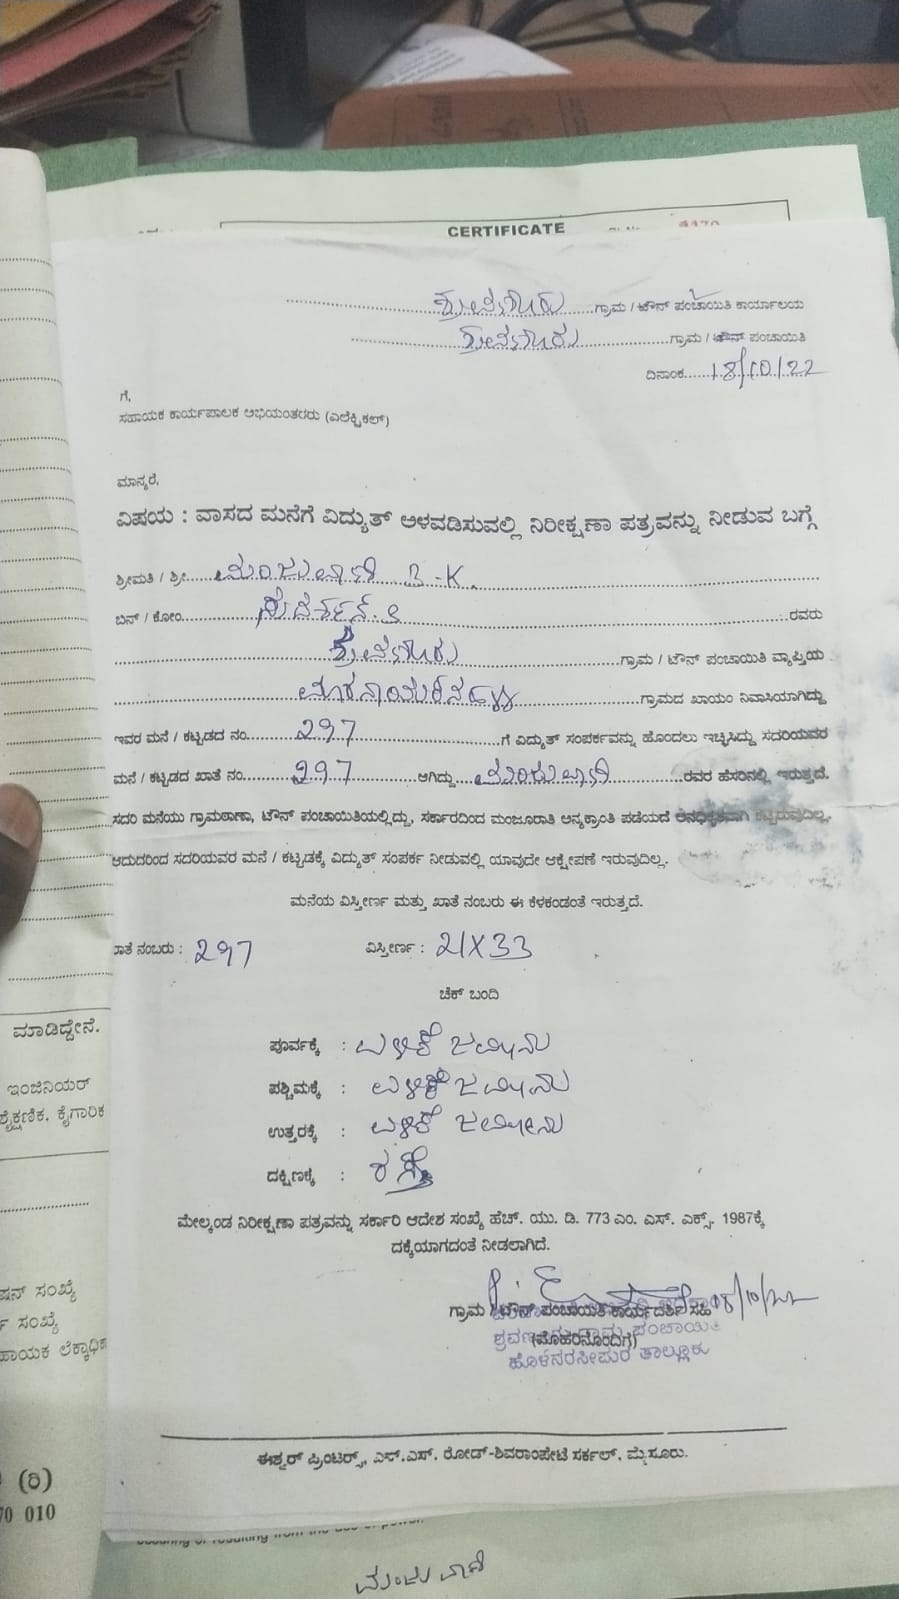 CERTIFICATE
ಗ್ರಾಮ / ಟೌನ್ ಪಂಚಾಯಿತಿ ಕಾರ್ಯಾಲಯ
ಗ್ರಾಮ / ಟೌನ್ ಪಂಚಾಯಿತಿ
ದಿನಾಂಕ......18/10/22
ಗೆ,
ಸಹಾಯಕ ಕಾರ್ಯಪಾಲಕ ಅಭಿಯಂತರರು (ಎಲೆಕ್ಟ್ರಿಕಲ್)
ಮಾನ್ಯರೆ,
ವಿಷಯ : ವಾಸದ ಮನೆಗೆ ವಿದ್ಯುತ್ ಅಳವಡಿಸುವಲ್ಲಿ ನಿರೀಕ್ಷಣಾ ಪತ್ರವನ್ನು ನೀಡುವ ಬಗ್ಗೆ
ಶ್ರೀಮತಿ / ಶ್ರೀ......ಮಂಜುವಾಣಿ B-K.
ಬಿನ್ / ಕೋಂ...... ರವರು
ಗ್ರಾಮ / ಟೌನ್ ಪಂಚಾಯಿತಿ ವ್ಯಾಪ್ತಿಯ
ಗ್ರಾಮದ ಖಾಯಂ ನಿವಾಸಿಯಾಗಿದ್ದು
ಇವರ ಮನೆ / ಕಟ್ಟಡದ ನಂ......297......ಗೆ ವಿದ್ಯುತ್ ಸಂಪರ್ಕವನ್ನು ಹೊಂದಲು ಇಚ್ಛಿಸಿದ್ದು ಸದರಿಯವರ
ಮನೆ / ಕಟ್ಟಡದ ಖಾತೆ ನಂ......297......ಆಗಿದ್ದು......ಮಂಜುವಾಣಿ......ರವರ ಹೆಸರಿನಲ್ಲಿ ಇರುತ್ತದೆ.
ಸದರಿ ಮನೆಯು ಗ್ರಾಮಠಾಣಾ, ಟೌನ್ ಪಂಚಾಯಿತಿಯಲ್ಲಿದ್ದು, ಸರ್ಕಾರದಿಂದ ಮಂಜೂರಾತಿ ಅನ್ಯಕ್ರಾಂತಿ ಪಡೆಯದೆ ಅನಧಿಕೃತವಾಗಿ ಕಟ್ಟಿರುವುದಿಲ್ಲ.
ಆದುದರಿಂದ ಸದರಿಯವರ ಮನೆ / ಕಟ್ಟಡಕ್ಕೆ ವಿದ್ಯುತ್ ಸಂಪರ್ಕ ನೀಡುವಲ್ಲಿ ಯಾವುದೇ ಆಕ್ಷೇಪಣೆ ಇರುವುದಿಲ್ಲ.
ಮನೆಯ ವಿಸ್ತೀರ್ಣ ಮತ್ತು ಖಾತೆ ನಂಬರು ಈ ಕೆಳಕಂಡಂತೆ ಇರುತ್ತದೆ.
ಖಾತೆ ನಂಬರು : 297 ವಿಸ್ತೀರ್ಣ : 21X33
ಚೆಕ್ ಬಂದಿ
ಪೂರ್ವಕ್ಕೆ : ಬಳಿಕೆ ಜಮೀನು
ಪಶ್ಚಿಮಕ್ಕೆ : ಬಳಿಕೆ ಜಮೀನು
ಉತ್ತರಕ್ಕೆ : ಬಳಿಕೆ ಜಮೀನು
ದಕ್ಷಿಣಕ್ಕೆ : ರಸ್ತೆ
ಮೇಲ್ಕಂಡ ನಿರೀಕ್ಷಣಾ ಪತ್ರವನ್ನು ಸರ್ಕಾರಿ ಆದೇಶ ಸಂಖ್ಯೆ ಹೆಚ್. ಯು. ಡಿ. 773 ಎಂ. ಎಸ್. ಎಕ್ಸ್. 1987ಕ್ಕೆ
ದಕ್ಕೆಯಾಗದಂತೆ ನೀಡಲಾಗಿದೆ.
18/10/22
ಗ್ರಾಮ / ಟೌನ್ ಪಂಚಾಯಿತಿ ಕಾರ್ಯದರ್ಶಿ ಸಹಿ
(ಮೊಹರಿನೊಂದಿಗೆ)
ಹೊಳೆನರಸೀಪುರ ತಾಲ್ಲೂಕು
ಈಶ್ವರ್ ಪ್ರಿಂಟರ್ಸ್, ಎಸ್.ಎಸ್. ರೋಡ್-ಶಿವರಾಂಪೇಟೆ ಸರ್ಕಲ್, ಮೈಸೂರು.
ಮಾಡಿದ್ದೇನೆ.
ಇಂಜಿನಿಯರ್
ಶೈಕ್ಷಣಿಕ, ಕೈಗಾರಿಕ
ಸಂಖ್ಯೆ
ಸಂಖ್ಯೆ
(ರಿ)
70 010
ಮಂಜುವಾಣಿ